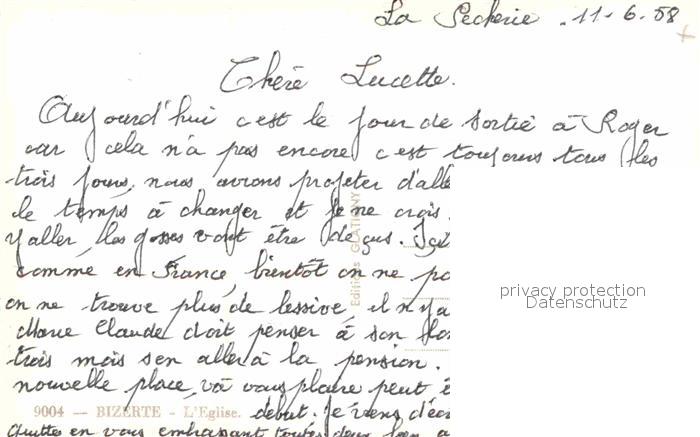 La Pecherie . 11-6.58
Chère Lucette.
Aujourd'hui c est le jour de sortie à Roger
car cela n'a pas encore c est toujours tous les
trois jours, nous avrons projeter d'alle
le temps à changer et je ne crois
y aller, les gosses vont être déçus. Ici
comme en France, bientôt on ne po
on ne trouve plus de lessive, il n'y a
Marie Claude doit penser à son
trois mois s'en aller à la pension.
nouvelle place, va vous plaire peut ê
9004 — BIZERTE - L'Eglise. début. Je viens d'éc
quitte en vous embrassant toutes deux bien a
Editions GLATIGNY
privacy protection
Datenschutz